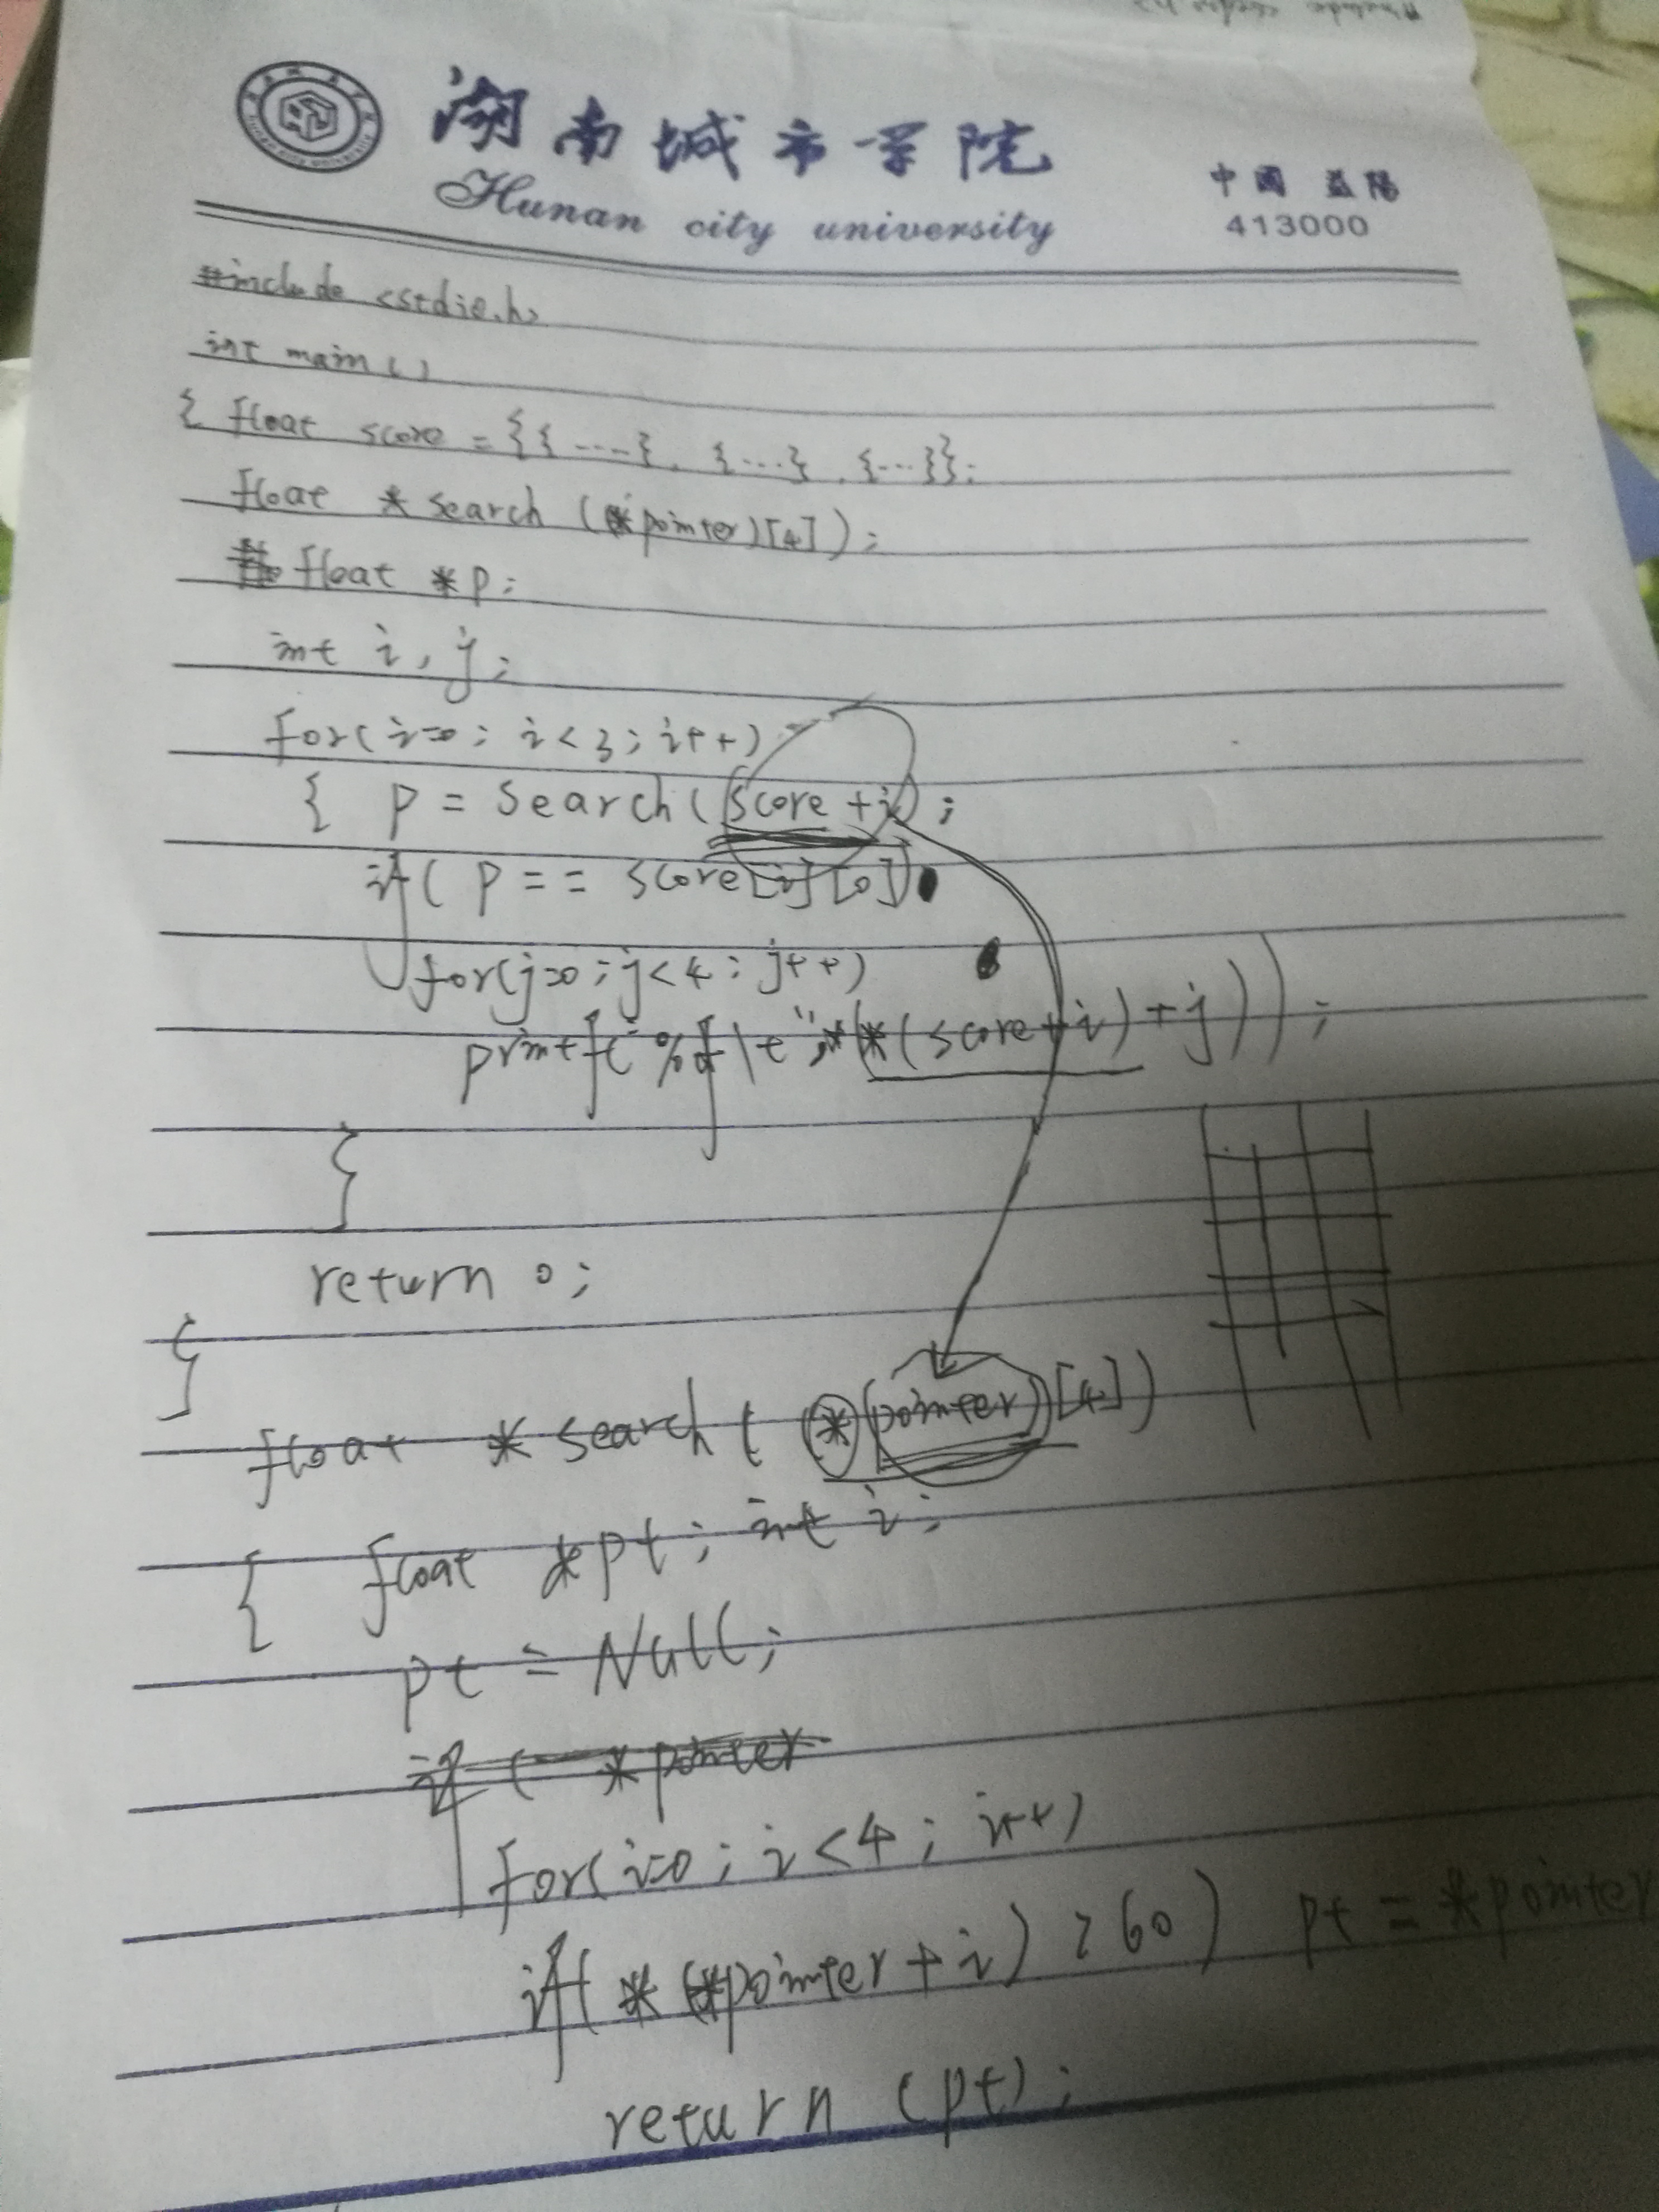 湖南城市学院
Hunan city university
中国 益阳
413000
#include <stdio.h>
int main()
{ float score = {{....}, {...}, {...}};
float *search (*pointer)[4]);
float *p;
int i, j;
for(i=0; i<3; i++)
{ p = search(score+i);
if( p == score[i][0])
for(j=0; j<4; j++)
printf("%f\t",*(*(score+i)+j));
}
return 0;
}
float *search( (*(pointer)[4])
{ float *pt; int i;
pt = NULL;
if ( *pointer
for(i=0; i<4; i++)
if( * (*pointer+i) >60) pt = *pointer
return (pt);